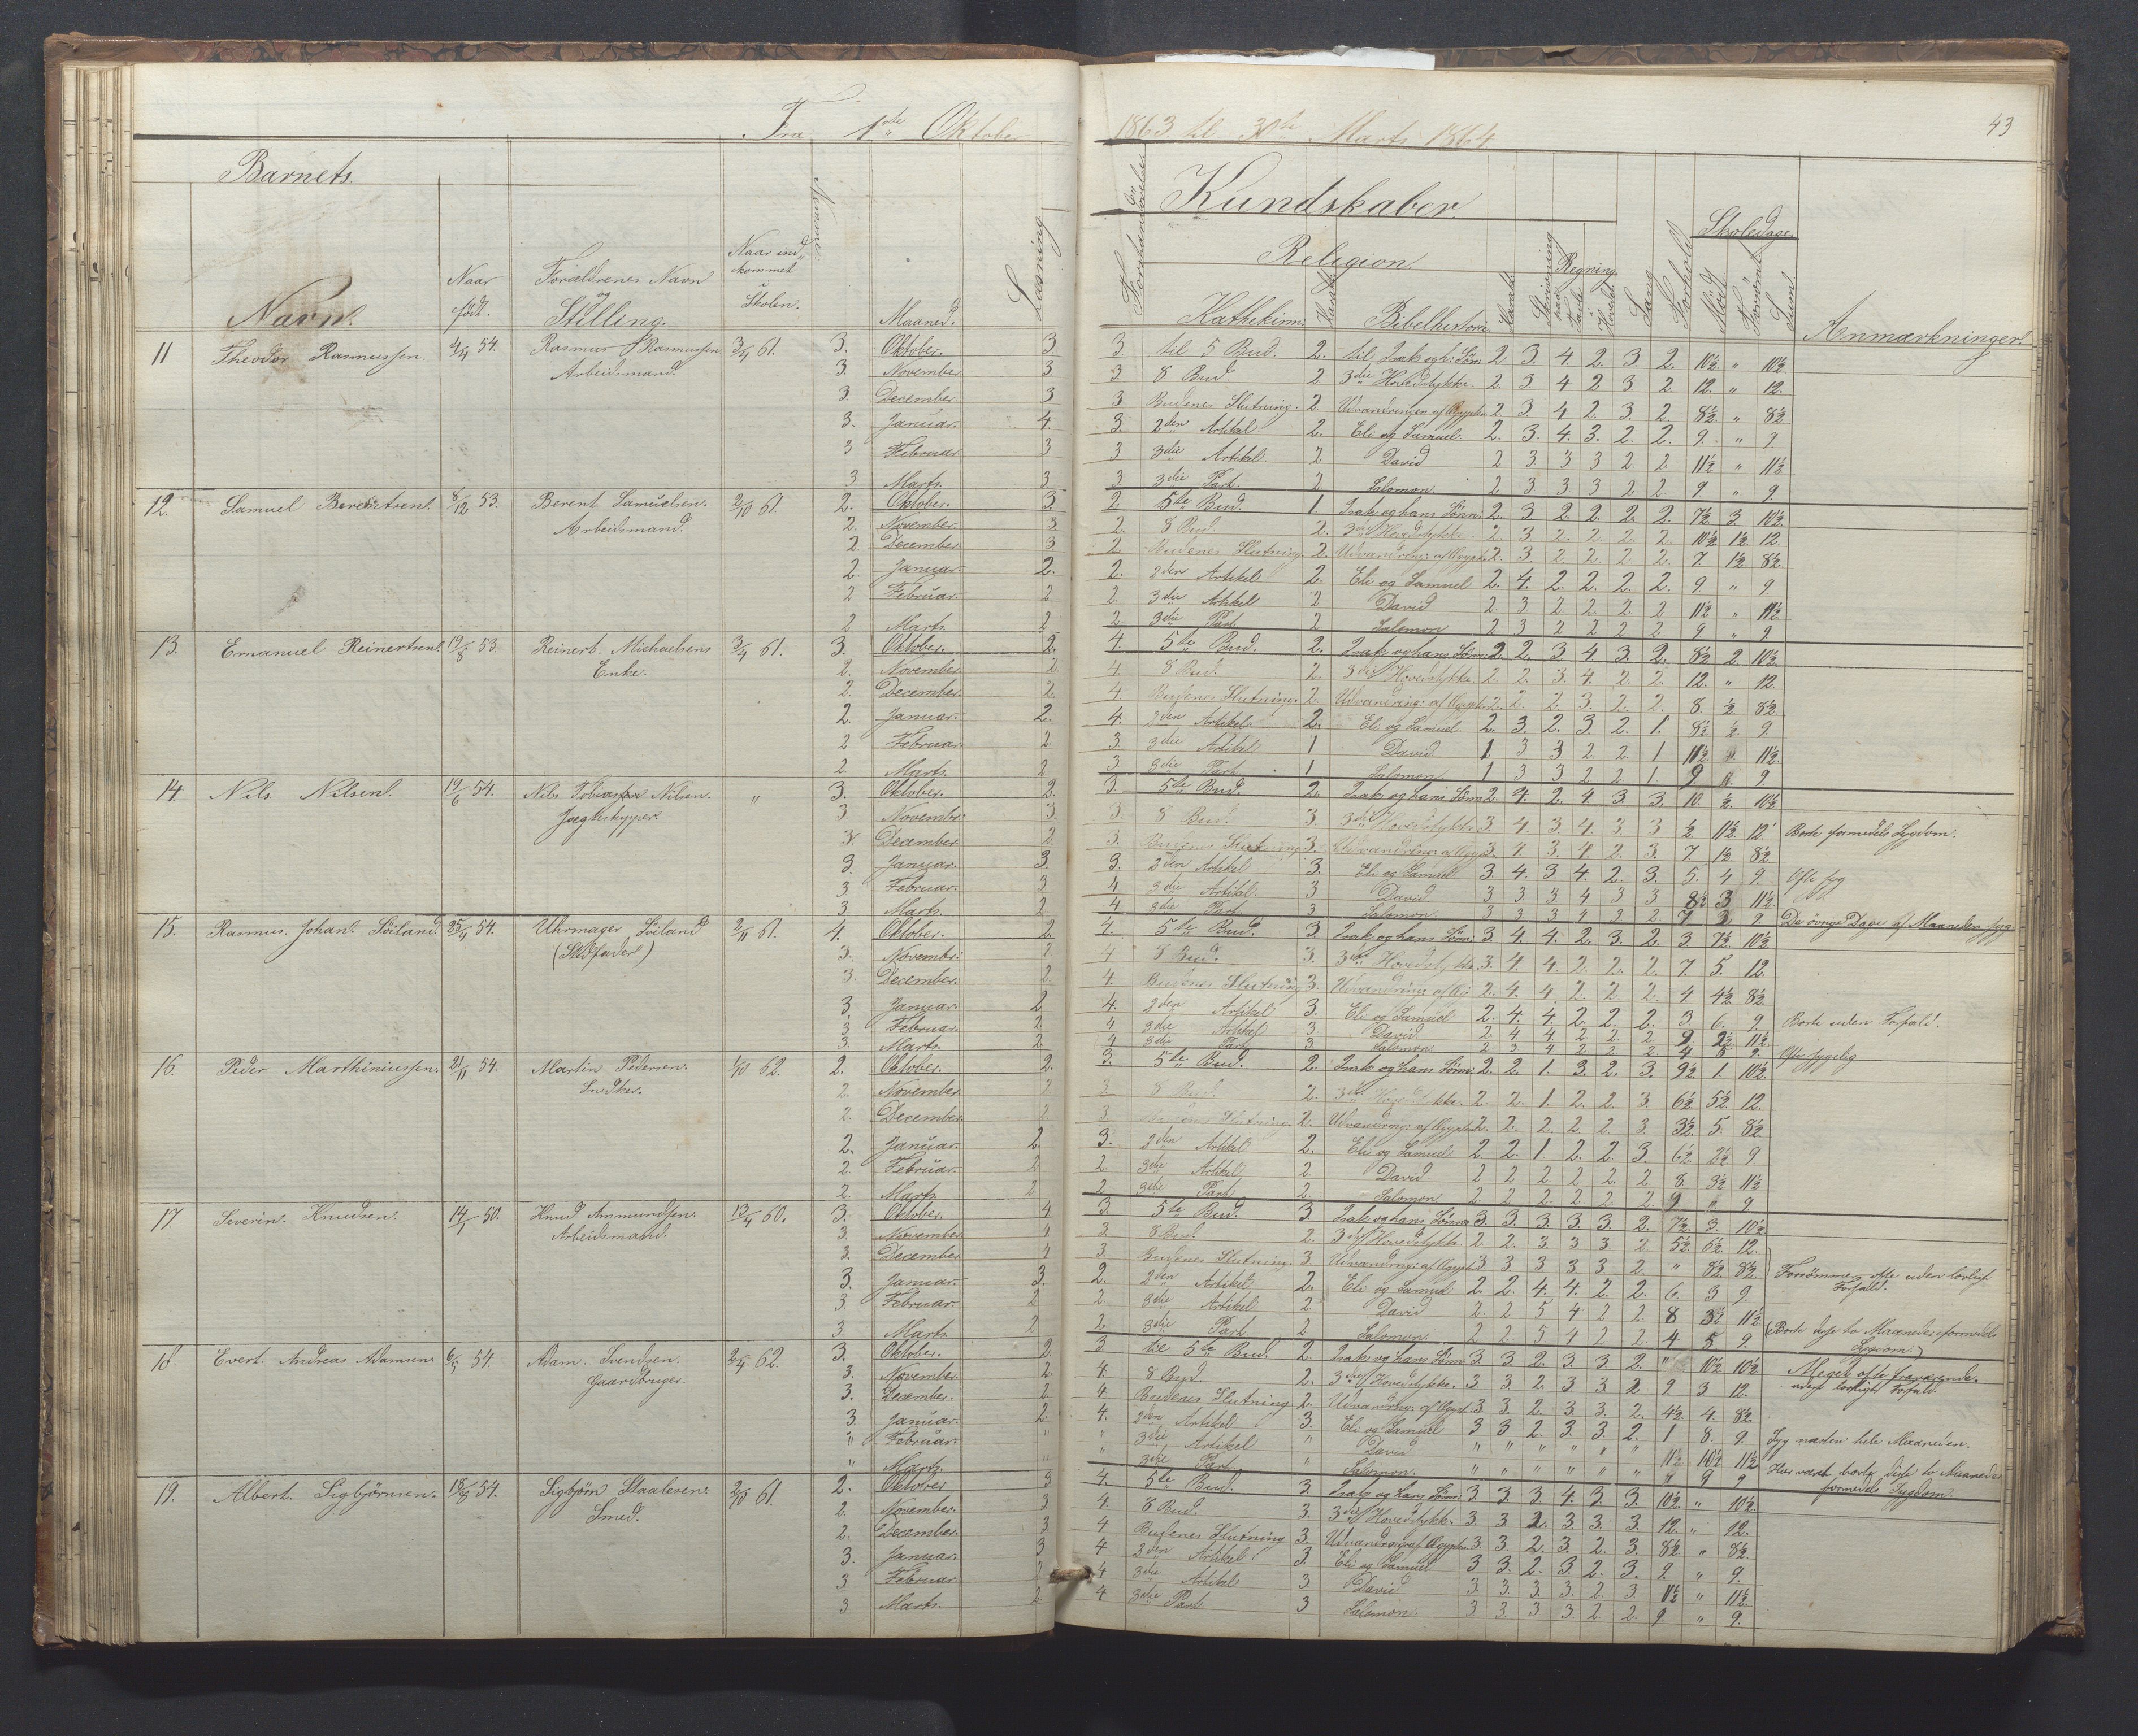 Fra 1ste Oktober 1863 til 30te Marts 1864
43
Barnets
Kundskaber
Skoledage.
Navn.
Naar født.
Forældrenes Navn og Stilling.
Naar ind kommet i Skolen.
Maaned.
Læsning
Religion.
Kathekism:
Karakt
Bibelhistorie
Karakt
Skrivning
Regning
paa Tavle
i Hovdet.
Sang
Forhold
Mødt
Forsømt
Sum.
Anmærkninger.
11 Theodor Rasmussen. 4/4 54. Rasmus Rasmussen Arbeidsmand. 3/4 61.
3. Oktober. 3. 3 til 5 Bud. 2. til Isak og h: Søn: 2 3. 4 2. 3 2. 10½ " 10½
3. November 3 3 8 Bud. 2 3die Hovedstykke. 2. 3 4 2 3 2 12. " 12.
3. December. 3 3 Budenes Slutning. 2 Udvandringen af Ægypten 2. 3. 4 2. 3. 2. 8½ " 8½
3. Januar. 4. 3. 2den Artikel 2. Eli og Samuel. 2. 3. 4. 3. 2. 2. 9. " 9
3 Februar. 3 3 3die Artikel. 2 David 2 3 3 3 2 2 11½ " 11½
3 Marts. 3 3 3die Part. 2 Salomon 2 3 3 3 2 2. 9 " 9.
12. Samuel Berentsen. 8/12 53. Berent Samuelsen. Arbeidsmand. 2/10 61.
2. Oktober. 3. 2 5te Bud. 1. Isak og hans Sønn: 2. 3 2. 2. 2. 2. 7½ 3. 10½
2. November. 3 2. 8 Bud. 2. 3die Hovedstykke. 2. 3 2. 2. 2. 2. 10½ 1½ 12.
2. December. 3 2 Budenes Slutning. 2. Udvandring: af Ægypt: 2. 3 2 2 2. 2. 7 1½ 8½
2. Januar. 2. 2. 2den Artikel 2. Eli og Samuel 2. 4. 2. 2. 2. 2. 9. " 9
2 Februar. 2 2. 3die Artikel 2 David 2 3 2 2. 2. 2 11½ " 11½
2 Marts. 2 2. 3die Part. 2 Salomon 2 3 2 2 2 2. 9 " 9
13. Emanuel Reinertsen. 19/8 53. Reinert. Michaelsens Enke. 3/4 61.
3. Oktober. 2. 4. 5te Bud. 2. Isak og hans Sønn: 2. 2. 3. 4 3. 2. 8½ 2. 10½
2. November 2 4. 8 Bud. 2. 3die Hovedstykke. 2 2. 3. 4. 2. 2. 12. " 12
2. December. 2. 4 Budenes Slutning. 2. Udvandring: af Ægypt: 2. 2. 2. 3. 2. 2. 8 ½ 8½
2. Januar. 2. 4. 2den Artikel 2. Eli og Samuel 2. 3. 2. 3. 2. 1. 8½ ½ 9.
2 Februar 2 3 3die Artikel 1 David 1 3 3 2 2 1 11½ " 11½
2. Marts. 2 3 3die Part. 1 Salomon 1 3 3 2 2. 1 9 " 9
14. Nils Nilsen. 19/6 54. Nils Tobias Nilsen. Jægtskipper. "
3. Oktober. 2. 3. 5te Bud. 2. Isak og hans Sønn: 2. 4. 2. 4. 3. 3. 10. ½ 10½
3. Novembr: 3. 3. 8 Bud. 3. 3die Hovedstykke. 3 4. 3. 4. 3. 3 ½ 11½ 12. Borte formedels Sygdom.
3. December. 2 3. Budenes Slutning 3. Udvandring: af Ægyp: 3. 4 3. 4. 2. 3. 7 1½ 8½
3. Januar. 3. 3. 2den Artikel 3. Eli og Samuel 3 4. 3 4. 2. 3. 5. 4 9. Ofte syg
3 Februar. 3. 4 3die Artikel. 3 David 3 3 3 4 3 3 8½ 3 11½
3. Marts. 2 4 3die Part. 3 Salomon. 3 3 3 4 3 2. 7 2 9 De övrige Dage af Maaneden syg.
15. Rasmus. Johan. Söiland. 25/4 54. Uhrmager Söiland (Stiffader) 2/11 61.
4. Oktober. 2. 4. 5te Bud. 3 Isak og hans Sønn: 3. 4. 4. 2. 3. 2. 3. 7½ 10½
3. Novembr: 2 4 8 Bud. 3. 3die Hovedstykke. 3. 4. 4. 2. 2. 2. 7. 5. 12.
3. December. 2. 4. Budenes Slutning 3. Udvandring: af Æ: 2. 4. 4 2. 2. 2. 4 4½ 8½
3. Januar. 2. 4. 2den Artikel 3. Eli og Samuel 2. 4. 4. 2. 2. 2. 3. 6. 9. Borte uden Forfald.
3. Februar. 2 4 3die Artikel 3. David 2. 4 4 2 2 2 9 2½ 11½
3. Marts. 2. 4 3die Part 3. Salomon 2 3 4 2 2 2 4 5 9. Ofte sygelig
16. Peder Marthiniussen. 21/11 54. Martin Pedersen. Snedker. 1/10 62.
2. Oktober. 2. 3. 5te Bud. 2. Isak og hans Sønn: 2. 2. 1. 3. 2. 3. 9½ 1. 10½
2. November 2 3 8 Bud. 2. 3die Hovedstykke. 2. 2. 1. 2. 2 3. 6½ 5½ 12.
2. December. 2 3. Budenes Slutning. 2. Udvandring: af Ægypt: 2. 2. 2. 2. 2. 3. 3½ 5. 8½
2. Januar. 2. 3. 2den Artikel 2. Eli og Samuel 2 2. 1 2. 2. 3. 6½ 2½ 9
2. Februar. 2 2 3die Artikel 2 David 2 2 2. 2. 2. 2. 8. 3½ 11½
2. Marts 2 2 3die Part 2 Salomon 2 2 2. 2. 2. 2. 9 " 9
17. Severin. Knudsen. 14/1 50. Knud Ammundsen. Arbeidsmand. 13/4 60.
3. Oktober. 4 3. 5te Bud. 3. Isak og hans Sønner 3. 3. 3. 3. 3. 2. 7½ 3. 10½
3. November 4 3. 8 Bud. 2. 3die Hovedstykke. 2 2. 3. 3. 3. 2 5½ 6½ 12.
3. December 4 3. Budenes Slutning. 3 Udvandring: af Ægypt: 3 3 3 3 3. 2. " 8½ 8½ Forsömmer ofte uden lovligt Forfald.
3. Januar. 3. 2. 2den Artikel 2. Eli og Samuel 2. 2. 4. 4. 2 2. 6. 3 9
3 Februar. 2 2. 3die Artikel 2 David 2. 2 5 4 2 2 8 3½ 11½
3. Marts. 2 2. 3die Part 2 Salomon. 2 2. 5 4 2 2. 4 5 9. (Borte disse to Maaneder formedels Sygdom.)
18. Evert. Andreas Adamsen. 54. Adam. Svendsen. Gaardbruger. 2/4 62.
3. Oktober. 2. 3. til 5te Bud. 2. Isak og hans Sønn: 3 3. 2. 3. 3. 2. " 10½ 10½ Meget ofte fraværende uden lovligt Forfald.
3. November 2. 4. 8 Bud. 2. 3die Hovedstykke. 3 3 2. 3 3 2 9 3 12.
3. December. 2 4 Budenes Slutning 2. Udvandring: af Ægypt: 3. 3. 2. 3. 3. 2. 4½ 4. 8½
3. Januar. 2. 4. 2den Artikel 3. Eli og Samuel 3 3 2. 3. 3. 2. 1 8. 9. Syg næsten hele Maaneden.
" Februar. " " 3die Artikel " David " " " " " " " 11½ 11½
" Marts. " " 3die Part. " Salomon. " " " " " " " 9 9 Har været borte disse to Maaneder formedels Sygdom.
19. Albert. Sigbjörnsen. 54. Sigbjørn Staalesen. Smed. 2/10 61.
2. Oktober 3 4. 5te Bud. 3 Isak og hans Sønn: 3 3. 3. 4. 3. 3. 10½ " 10½
2. November. 3 4. 8 Bud. 3. 3die Hovedstykke. 3. 3 2. 3 3. 3. 12. " 12.
2. December. 3 4 Budenes Slutning 3. Udvandring af Ægypten 3 3. 2. 3 2. 3. 8½ " 8½
3. Januar. 3 4 2den Artikel 3. Eli og Samuel 3 3. 2. 3. 2. 3. 9. " 9.
3 Februar. 2 4 3die Artikel 3. David 3 3. 3. 3 2 3 11½ " 11½
3 Marts. 2 4 3die Part. 3 Salomon. 3 3. 3 3. 2. 2. 9. " 9.